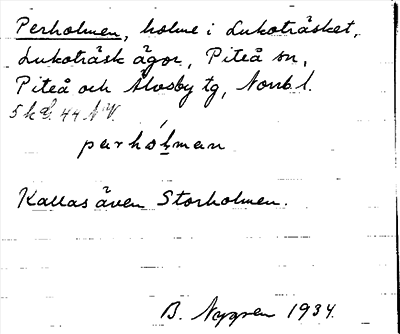 Perholmen, holme i Lukoträsket,
Lukoträsk ägor, Piteå sn,
Piteå och Älvsby tg, Norrb. l.
5 k 44 NV.
parhólman
Kallas även Storholmen.
B. Nygren 1934.